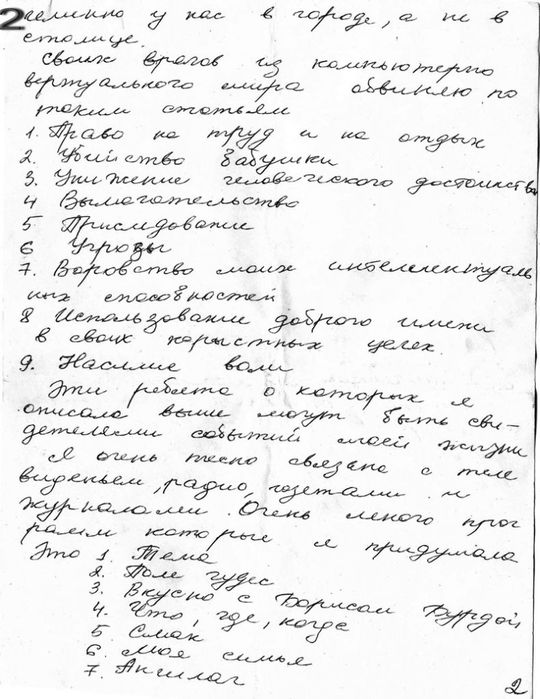 2
именно у нас в городе, а не в
столице.
Своих врагов из компьютерно
вертуального мира обвиняю по
таким статьям
1. Право на труд и на отдых
2. Убийство бабушки
3. Унижение человеческого достоинства
4 Вымагательство
5 Приследование
6 Угрозы
7. Воровство моих интелектуаль
ных способностей
8 Использование доброго имени
в своих корыстных целех.
9. Насилие воли
Эти ребята о которых я
описала выше могут быть сви-
детелями событий моей жизни
Я очень тесно связана с теле
виденьем, радио, газетами и
журналами. Очень много прог
рамм которые я придумала
Это 1. Тема
2. Поле чудес
3. Вкусно с Борисом Бурдой
4. Что, где, когда
5 Смак
6. Моя симья
7. Аншлаг
2